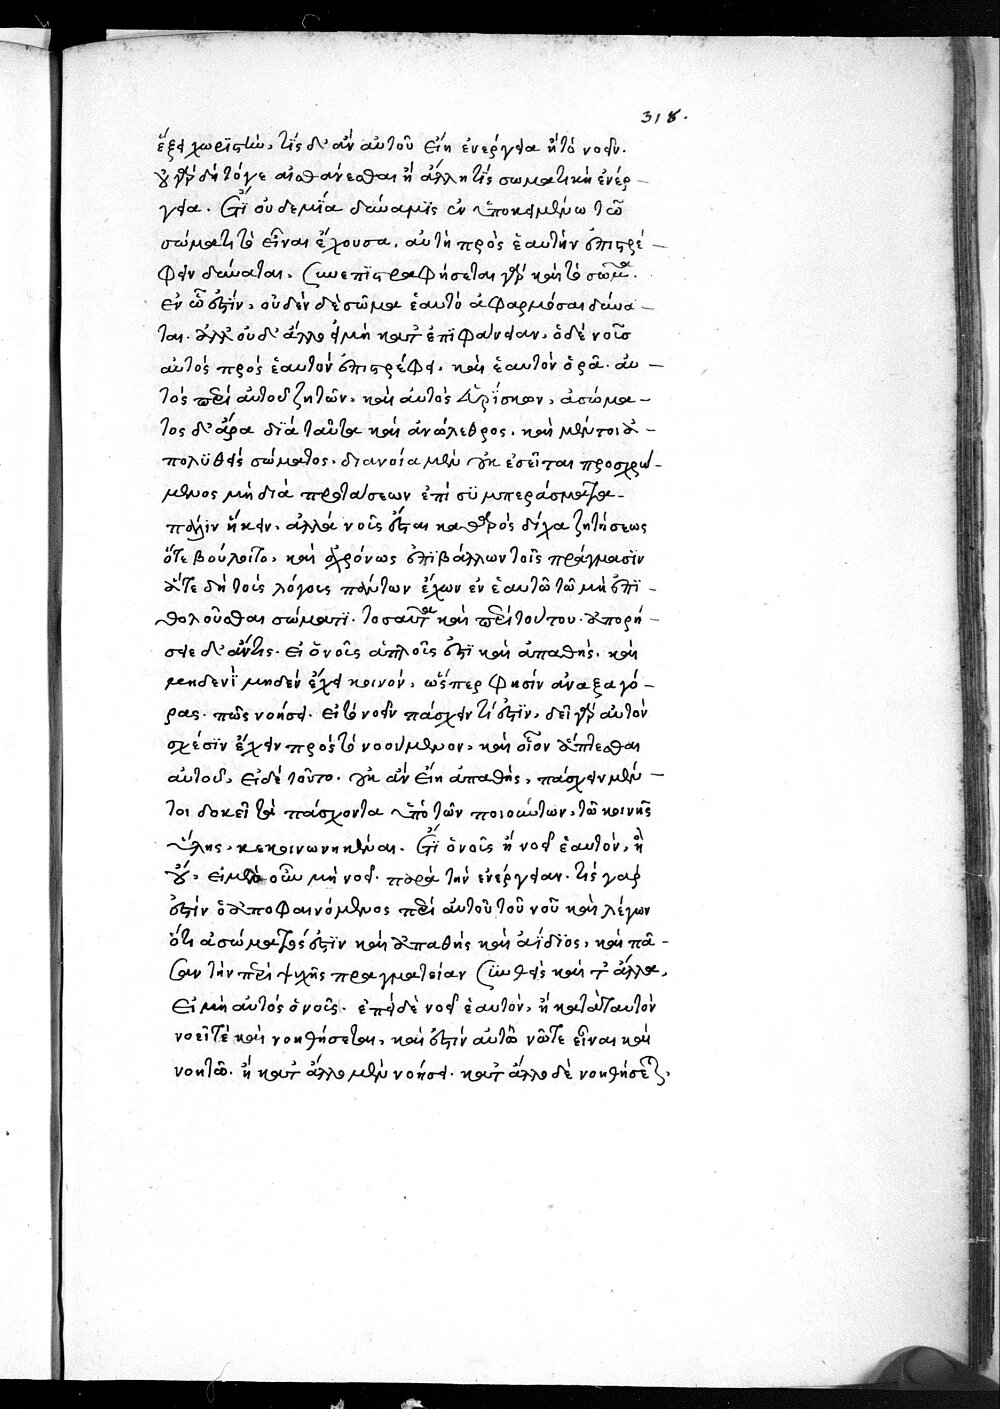 318.
ἕξει χωριστὴν, τίς δ' ἂν αὐτοῦ εἴη ἐνέργεια ἢ τὸ νοεῖν.
οὐ γὰρ δὴ τόγε αἰσθάνεσθαι ἢ ἄλλη τίς σωματικὴ ἐνέρ-
γεια. ἔτι οὐδεμία δύναμις ἐν ὑποκειμένω τῶ
σώματι τὸ εἶναι ἔχουσα, αὐτὴ πρὸς ἑαυτὴν ἐπιστρέ-
φειν δύναται. συνεπιστραφήσεται γὰρ καὶ τὸ σῶμα.
ἐν ὧ ἐστίν, οὐδὲν δὲ σῶμα ἑαυτὸ ἐφαρμόσαι δύνα-
ται. ἀλλ' οὐδ' ἄλλο εἰ μὴ κατ' ἐπιφάνειαν, ὁ δὲ νοῦς
αὐτὸς πρὸς ἑαυτὸν ἐπιστρέφει, καὶ ἑαυτὸν ὁρᾶ. αὐ-
τὸς περὶ αὐτοῦ ζητῶν, καὶ αὐτὸς εὑρίσκων, ἀσώμα-
τος δ' ἄρα διὰ ταῦτα καὶ ἀνώλεθρος. καὶ μέντοι ἀ-
πολυθεὶς σώματος. διανοία μὲν οὐκ ἔσειται προσχρώ-
μενος μὴ διὰ προτάσεων ἐπὶ συμπεράσματα-
πάλιν ἥκειν. ἀλλὰ νοῦς ἔσται καθαρὸς δίχα ζητήσεως
ὅτε βούλοιτο, καὶ ἀχρόνως ἐπιβάλλων τοῖς πράγμασιν
ἅτε δὴ τοὺς λόγους πάντων ἔχων ἐν ἑαυτῶ τῶ μὴ ἐπι-
θολοῦσθαι σώματι. τοσαῦτα καὶ περὶ τούτου. ἀπορή-
σειε δ' ἄν τις. εἰ ὁ νοῦς ἁπλοῦς ἐστὶ καὶ ἀπαθὴς. καὶ
μηδενὶ μηδὲν ἔχει κοινόν, ὥσπερ φησὶν ἀναξαγό-
ρας. πῶς νοήσει. εἰ τὸ νοεῖν πάσχειν τί ἐστὶν, δεῖ γὰρ αὐτὸν
σχέσιν ἔχειν πρὸς τὸ νοούμενον, καὶ οἷον ἅπτεσθαι
αὐτοῦ, εἰ δὲ τοῦτο. οὐκ ἂν εἴη ἀπαθὴς, πάσχειν μέν-
τοι δοκεῖ τὰ πάσχοντα ὑπὸ τῶν ποιούντων, τῶ κοινῆς
ὕλης, κεκοινωνηκέναι. ἔτι ὁ νοῦς ἢ νοεῖ ἑαυτὸν, ἢ
οὔ, εἰ μὲν οὖν μὴ νοεῖ. παρὰ τὴν ἐνέργειαν. τίς γάρ
ἐστίν ὁ ἀποφαινόμενος περὶ αὐτοῦ τοῦ νοῦ καὶ λέγων
ὅτι ἀσώματός ἐστιν καὶ ἀπαθὴς καὶ ἀίδιος, καὶ πᾶ-
σαν τὴν περὶ ψυχῆς πραγματείαν συνθεὶς καὶ τ' ἄλλα,
εἰ μὴ αὐτὸς ὁ νοῦς. ἐπεὶ δὲ νοεῖ ἑαυτὸν, ἢ κατὰ ταυτὸν
νοεῖ τὲ καὶ νοηθήσεται, καὶ ἐστὶν αὐτῶ νῶτε εἶναι καὶ
νοητῶ. ἢ κατ' ἄλλο μὲν νοήσει. κατ' ἄλλο δὲ νοηθήσεται.